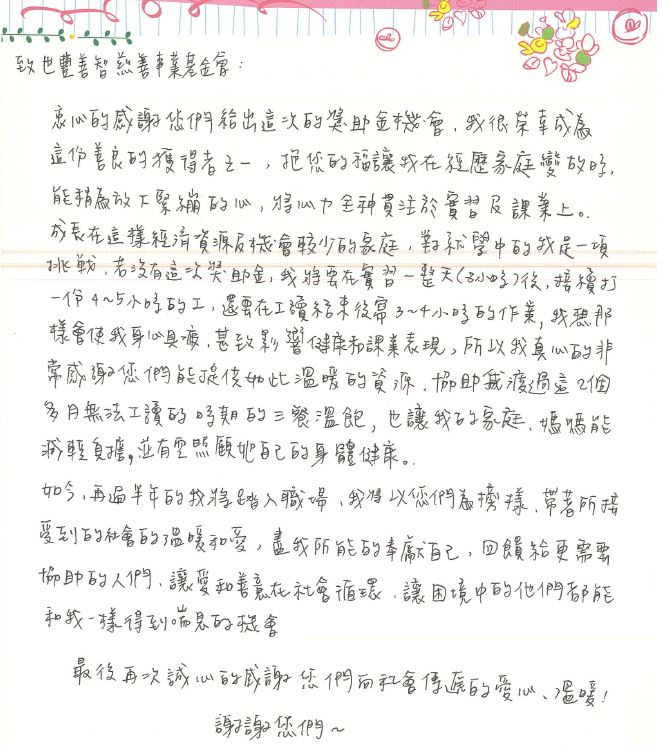 致也豐善智慈善事業基金會:
衷心的感謝您們給出這次的獎助金機會、我很榮幸成為
這份善良的獲得者之一,把您的福讓我在經歷家庭變故時,
能稍為放下緊繃的心,將心力全神貫注於實習及課業上。
成長在這樣經濟資源及機會較少的家庭,對就學中的我是一項
挑戰,若沒有這次獎助金,我將要在實習一整天(8小時)後,接續打
一份4~5小時的工,還要在工讀結束後寫3~4小時的作業,我想那
樣會使我身心具疲、甚致影響健康和課業表現,所以我真心的非
常感謝您們能提供如此溫暖的資源、協助我渡過這2個
多月無法工讀的時期的三餐溫飽,也讓我的家庭、媽媽能
減輕負擔,並有空照顧她自己的身體健康。
如今、再過半年的我將踏入職場、我將以您們為榜樣、帶著所接
受到的社會的溫暖和愛,盡我所能的奉獻自己,回饋給更需要
協助的人們、讓愛和善意在社會循環、讓困境中的他們都能
和我一樣得到喘息的機會
最後再次誠心的感謝您們向社會傳遞的愛心、溫暖!
謝謝您們~